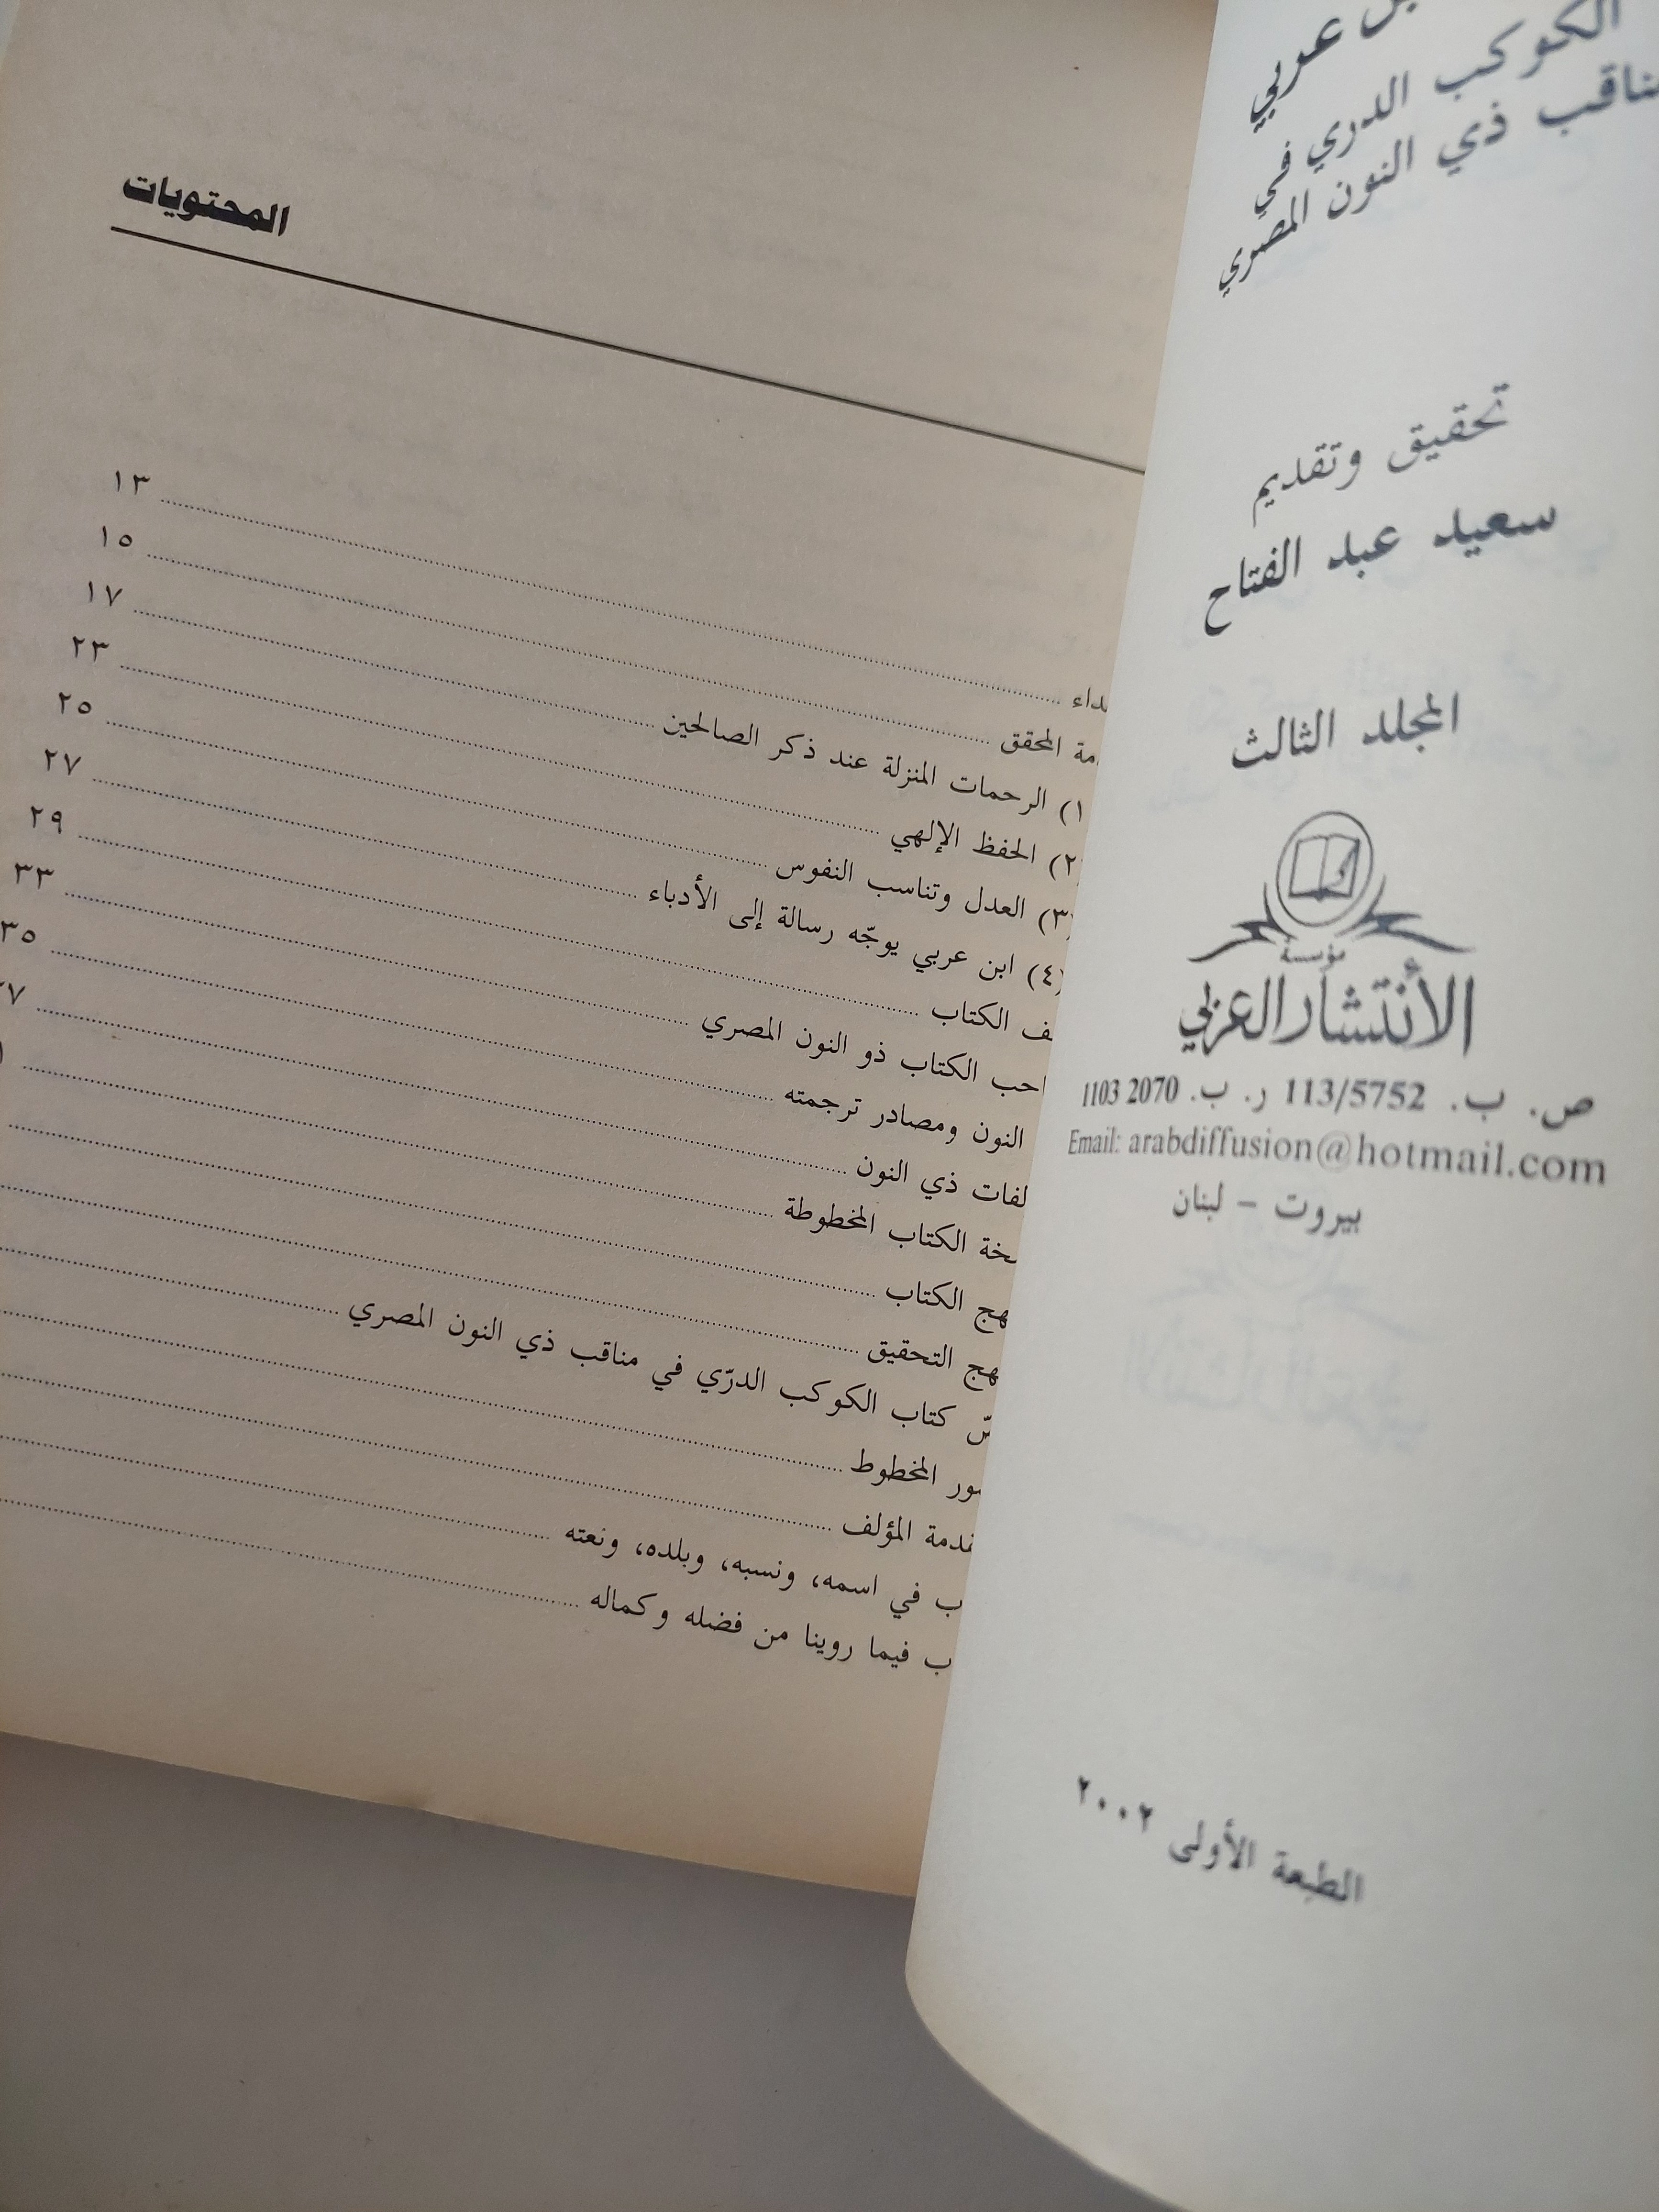 عربي
الكوكب الدري في
مناقب ذي النون المصري
تحقيق وتقديم
سعيد عبد الفتاح
المجلد الثالث
مؤسسة
الأنتشار العربي
ص. ب. 113/5752 ر. ب. 2070 1103
Email: arabdiffusion@hotmail.com
بيروت - لبنان
الطبعة الأولى ٢٠٠٢
المحتويات
داء ١٣
مة المحقق ١٥
١) الرحمات المنزلة عند ذكر الصالحين ١٧
٢) الحفظ الإلهي ٢٣
(٣) العدل وتناسب النفوس ٢٥
(٤) ابن عربي يوجّه رسالة إلى الأدباء ٢٧
ف الكتاب ٢٩
احب الكتاب ذو النون المصري ٣٣
النون ومصادر ترجمته ٣٥
لفات ذي النون ٧
خة الكتاب المخطوطة
هج الكتاب
هج التحقيق
صّ كتاب الكوكب الدرّي في مناقب ذي النون المصري
ور المخطوط
دمة المؤلف
ب في اسمه، ونسبه، وبلده، ونعته
ب فيما روينا من فضله وكماله